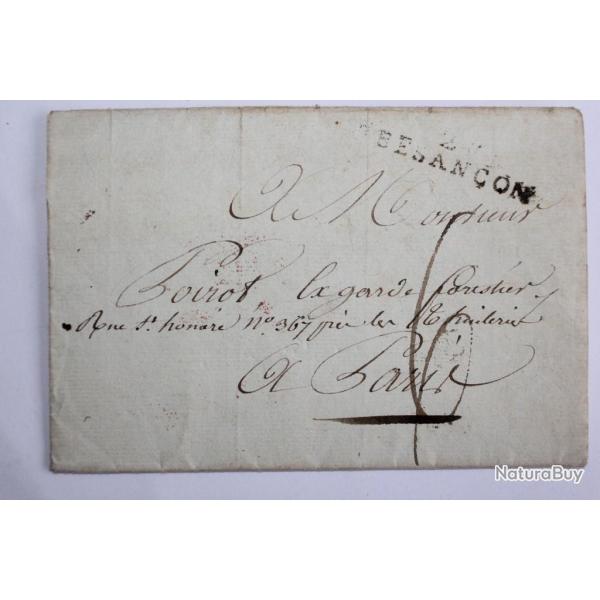 BESANÇON
A Monsieur
Poirot Ex garde forestier
Rue St honoré No. 367 près les
A Paris
6
NaturaBuy